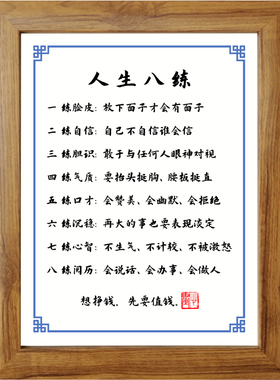 人生八练
一 练脸皮：放下面子才会有面子
二 练自信：自己不自信谁会信
三 练胆识：敢于与任何人眼神对视
四 练气质：要抬头挺胸、腰板挺直
五 练口才：会赞美、会幽默、会拒绝
六 练沉稳：再大的事也要表现淡定
七 练心智：不生气、不计较、不被激怒
八 练阅历：会说话、会办事、会做人
想挣钱，先要值钱。